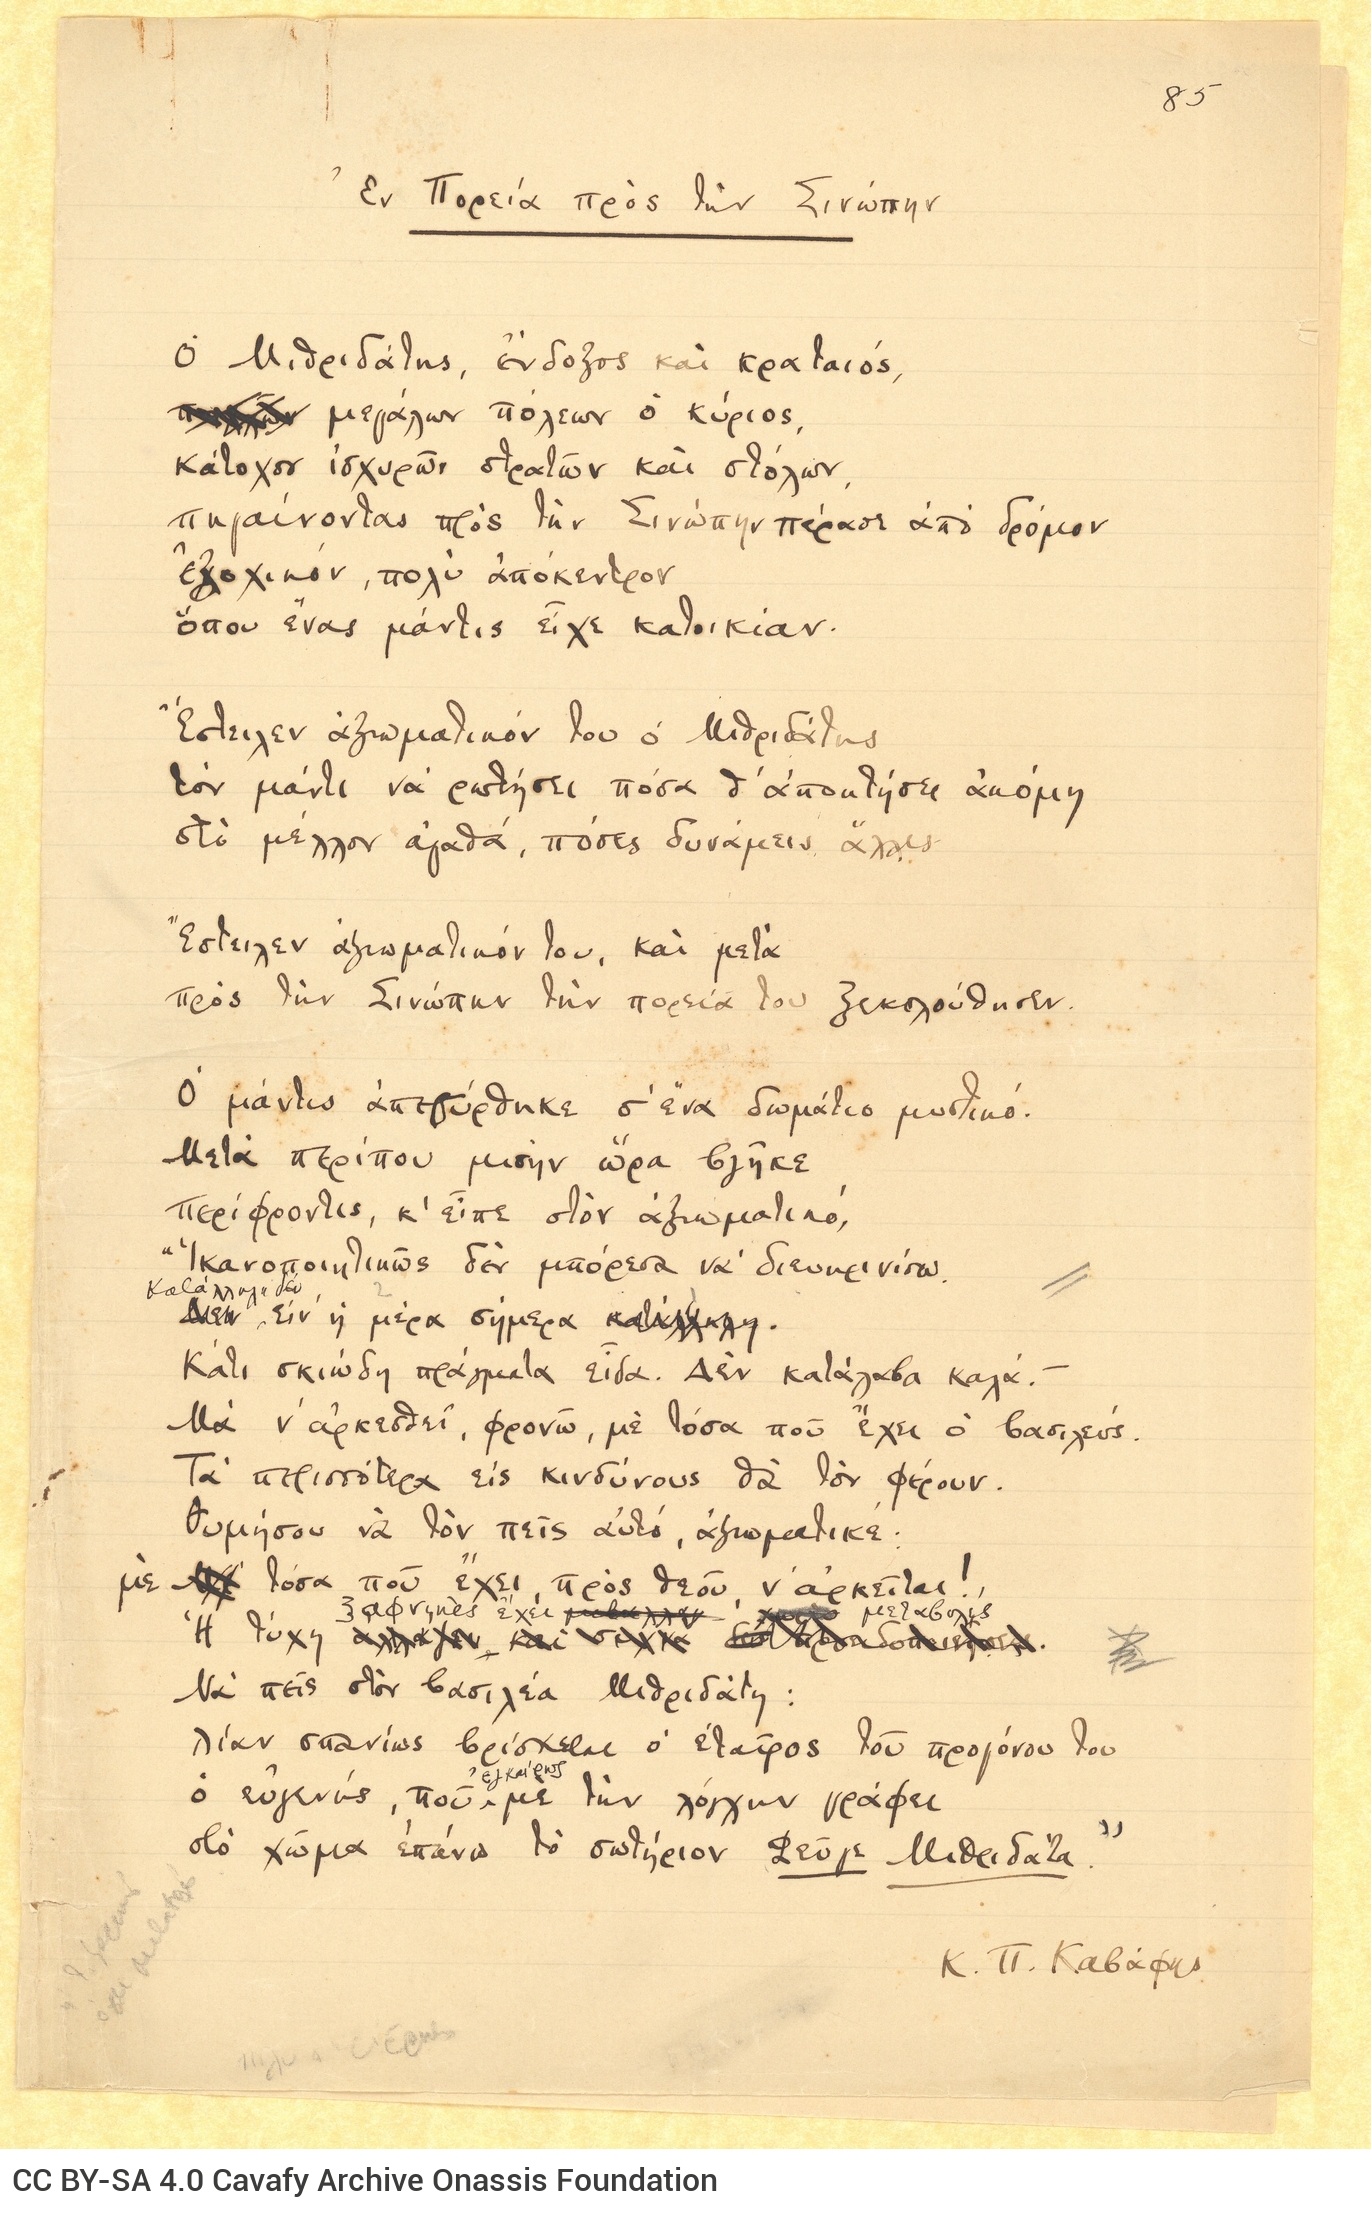 85
Ἐν Πορεία πρὸς τὴν Σινώπην
Ὁ Μιθριδάτης, ἔνδοξος καὶ κραταιός,
μεγάλων πόλεων ὁ κύριος,
κάτοχος ἰσχυρῶν στρατῶν καὶ στόλων,
πηγαίνοντας πρὸς τὴν Σινώπην πέρασε ἀπὸ δρόμον
ἐξοχικόν, πολὺ ἀπόκεντρον
ὅπου ἕνας μάντις εἶχε κατοικίαν.
Ἔστειλεν ἀξιωματικόν του ὁ Μιθριδάτης
τὸν μάντι νὰ ρωτήσει πόσα θ' ἀποκτήσει ἀκόμη
στὸ μέλλον ἀγαθά, πόσες δυνάμεις ἄλλες
Ἔστειλεν ἀξιωματικόν του, καὶ μετὰ
πρὸς τὴν Σινώπην τὴν πορεία του ξεκολούθησεν.
Ὁ μάντις ἀπεσύρθηκε σ' ἕνα δωμάτιο μυστικό.
Μετὰ περίπου μισὴν ὥρα βγῆκε
περίφροντις, κ' εἶπε στὸν ἀξιωματικό,
"Ἱκανοποιητικῶς δὲν μπόρεσα νὰ διευκρινίσω.
Κατάλληλη δὲν
εἶν' ἡ μέρα σήμερα .
Κάτι σκιώδη πράγματα εἶδα. Δὲν κατάλαβα καλά.—
Μὰ ν' ἀρκεσθεῖ, φρονῶ, μὲ τόσα ποῦ ἔχει ὁ βασιλεύς.
Τὰ περισσότερα εἰς κινδύνους θὰ τὸν φέρουν.
Θυμήσου νὰ τὸν πεῖς αὐτό, ἀξιωματικέ:
μὲ τόσα ποῦ ἔχει, πρὸς θεοῦ, ν' ἀρκεῖται!
ξαφνικὲς ἔχει μεταβολές
Ἡ τύχη .
Νὰ πεῖς στὸν βασιλέα Μιθριδάτη:
λίαν σπανίως βρίσκεται ὁ ἑταῖρος τοῦ προγόνου του
ἐγκαίρως
ὁ εὐγενής, ποῦ μὲ τὴν λόγχην γράφει
στὸ χῶμα ἐπάνω τὸ σωτήριον Φεῦγε Μιθριδάτα."
Κ. Π. Καβάφης
CC BY-SA 4.0 Cavafy Archive Onassis Foundation